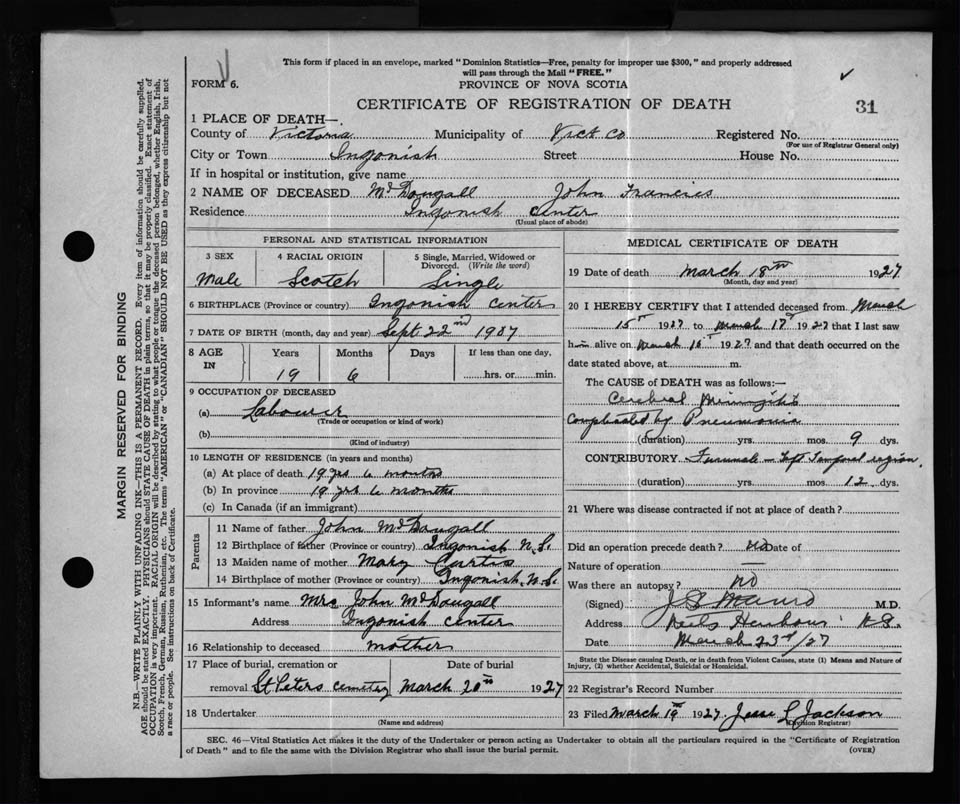 This form if placed in an envelope, marked "Dominion Statistics—Free, penalty for improper use $300," and properly addressed
will pass through the Mail "FREE."
FORM 6.
PROVINCE OF NOVA SCOTIA
CERTIFICATE OF REGISTRATION OF DEATH
31
1 PLACE OF DEATH—
County of Victoria Municipality of Vict Co Registered No.
(For use of Registrar General only)
City or Town Ingonish Street House No.
If in hospital or institution, give name
2 NAME OF DECEASED McDougall John Francies
Residence Ingonish Center
(Usual place of abode)
PERSONAL AND STATISTICAL INFORMATION
3 SEX 4 RACIAL ORIGIN 5 Single, Married, Widowed or Divorced. (Write the word)
Male Scotch Single
6 BIRTHPLACE (Province or country) Ingonish Center
7 DATE OF BIRTH (month, day and year) Sept 22nd 1907
8 AGE IN Years Months Days If less than one day,
19 6 hrs. or min.
9 OCCUPATION OF DECEASED
(a) Labourer
(Trade or occupation or kind of work)
(b)
(Kind of industry)
10 LENGTH OF RESIDENCE (in years and months)
(a) At place of death 19 yrs 6 months
(b) In province 19 yrs 6 months
(c) In Canada (if an immigrant)
Parents
11 Name of father John McDougall
12 Birthplace of father (Province or country) Ingonish N.S.
13 Maiden name of mother Mary Curtis
14 Birthplace of mother (Province or country) Ingonish, N.S.
15 Informant's name Mrs John McDougall
Address Ingonish Center
16 Relationship to deceased mother
17 Place of burial, cremation or Date of burial
removal St Peters cemetey March 20th 1927
18 Undertaker
(Name and address)
MEDICAL CERTIFICATE OF DEATH
19 Date of death March 18th 1927
(Month, day and year)
20 I HEREBY CERTIFY that I attended deceased from March
15th 1927 to March 17th 1927 that I last saw
him alive on March 1927 and that death occurred on the
date stated above, at m.
The CAUSE of DEATH was as follows:—
Cerebral Miningitis
Complicated by Pneumonia
(duration) yrs. mos. 9 dys.
CONTRIBUTORY Furuncle — Left Temporal region.
(duration) yrs. mos. 12 dys.
21 Where was disease contracted if not at place of death?
Did an operation precede death? no Date of
Nature of operation —
Was there an autopsy? no
(Signed) M.D.
Address Neils Harbour N.S.
Date March 23rd/27
State the Disease causing Death, or in death from Violent Causes, state (1) Means and Nature of
Injury, (2) whether Accidental, Suicidal or Homicidal.
22 Registrar's Record Number
23 Filed March 19th 1927 Jesse L Jackson
(Division Registrar)
SEC. 46—Vital Statistics Act makes it the duty of the Undertaker or person acting as Undertaker to obtain all the particulars required in the "Certificate of Registration
of Death" and to file the same with the Division Registrar who shall issue the burial permit. (OVER)
MARGIN RESERVED FOR BINDING
N.B.—WRITE PLAINLY WITH UNFADING INK—THIS IS A PERMANENT RECORD. Every item of information should be carefully supplied.
AGE should be stated EXACTLY. PHYSICIANS should STATE CAUSE OF DEATH in plain terms, so that it may be properly classified. Exact statement of
OCCUPATION is very important. RACIAL ORIGIN will be described by stating to what people or tongue the deceased person belonged, whether English, Irish,
Scotch, French, German, Russian, Ruthenian, etc. The terms "AMERICAN" or "CANADIAN" SHOULD NOT BE USED as they express citizenship but not
a race or people. See instructions on back of Certificate.